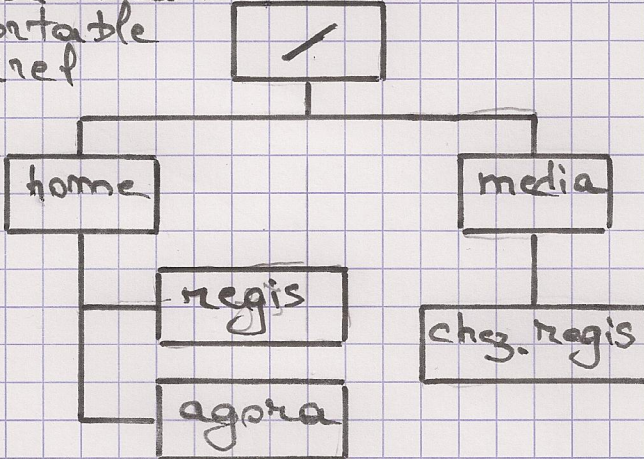 ortable
ref
/
home
media
regis
chez.regis
agora